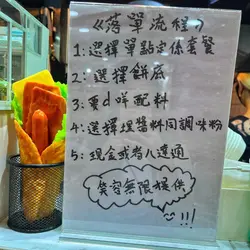 《落單流程》
1: 選擇單點定係套餐
2: 選擇餅底
3: 要d咩配料
4: 選擇埋醬料同調味粉
5: 現金或者八達通
笑容無限提供
!!!